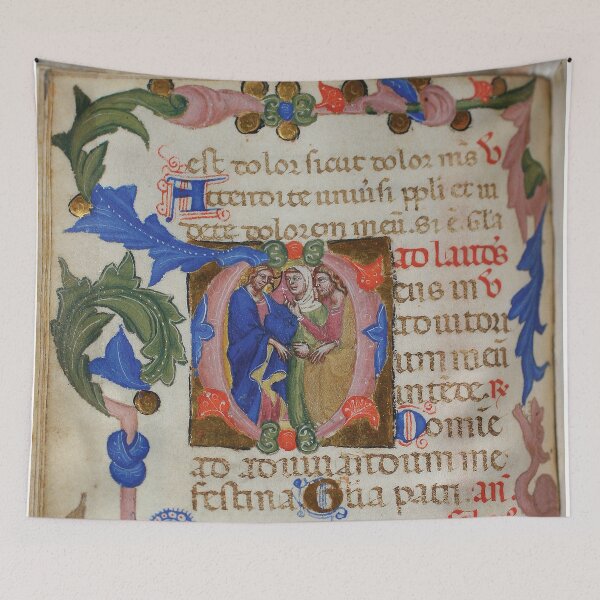 est dolor sicut dolor m̅s ℣
Attendite univ̅si p̅p̅li et vi
dete dolorem meu̅. Si e̅. Gl̅a
ad laudes
ad iuvan̅
um meu̅
intede. ℟.
Domi̅e
ad adiuvandum me
festina Gl̅ia patri. an̅.